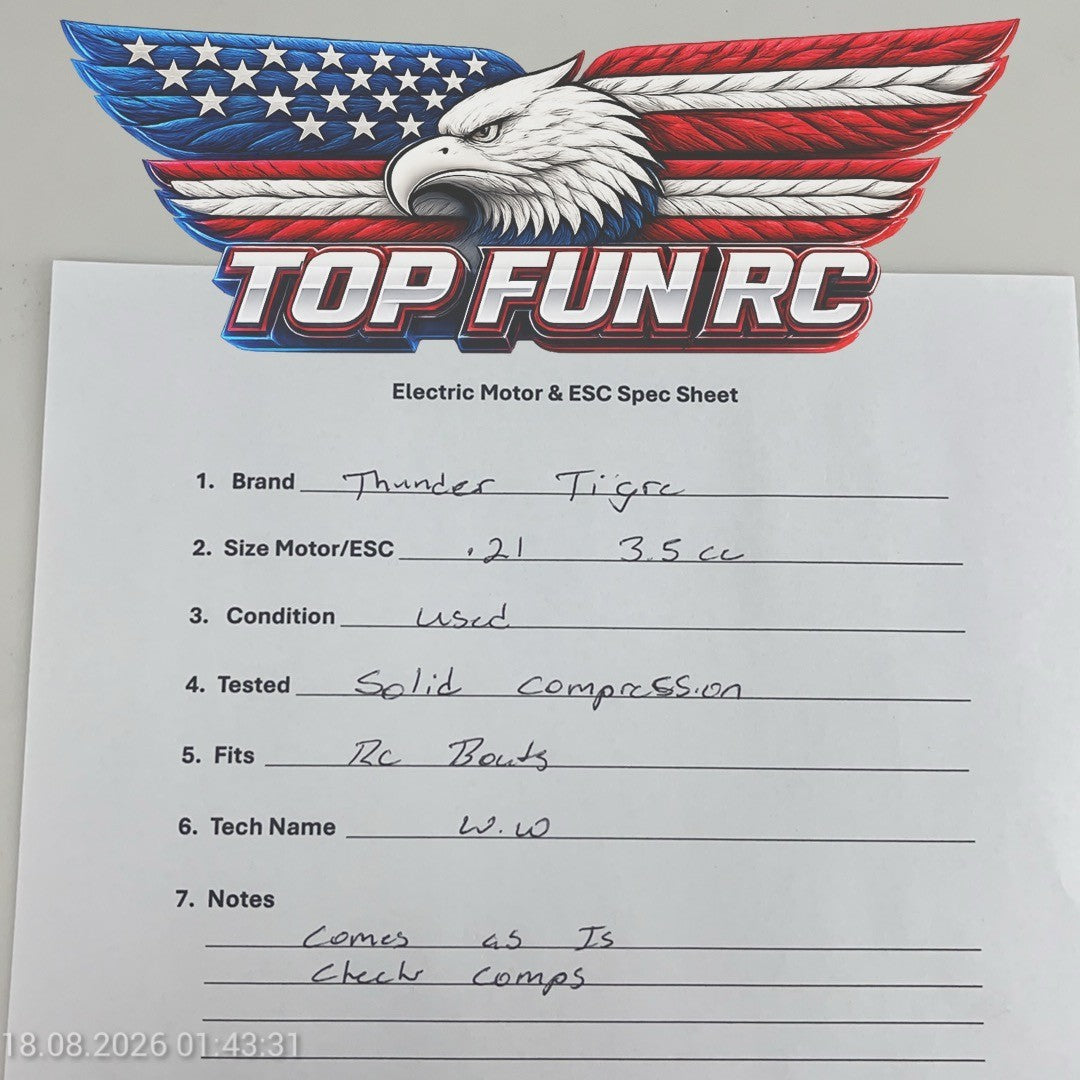 TOP FUN RC
Electric Motor & ESC Spec Sheet
1. Brand Thunder Tigre
2. Size Motor/ESC .21 3.5 cc
3. Condition used
4. Tested Solid compression
5. Fits Rc Boats
6. Tech Name W.W
7. Notes
Comes as Is
Check comps
18.08.2026 01:43:31